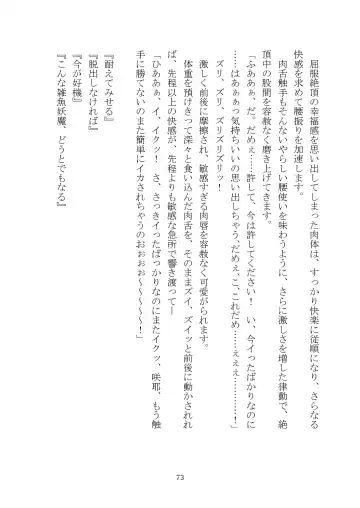 屈服絶頂の幸福感を思い出してしまった肉体は、すっかり快楽に従順になり、さらなる
快感を求めて腰振りを加速します。
肉舌触手もそんないやらしい腰使いを味わうように、さらに激しさを増した律動で、絶
頂中の股間を容赦なく磨き上げてきます。
「ふああぁ、だ。だめぇ……許して、今は許してください！　い、今イったばかりなのに
……はあぁぁっ気持ちいいの思い出しちゃう、だめぇ、こ、これだめ……ぇぇぇ………！」
ズリ、ズリ、ズリズリズリッ！
激しく前後に摩擦され、敏感すぎる肉唇を容赦なく可愛がられる。
体重を預けきって深々と食い込んだ肉舌を、そのままズイ、ズイッと前後に動かされれ
ば、先程以上の快感が、先程よりも敏感な急所で響き渡ってー
「ひああぁ、イ、イクッ！　さ、さっきイったばっかりなのにまたイクッ、咲耶、もう触
手に勝てないのまた簡単にイカされちゃうのおぉぉぉ～～～～～～！」
『耐えてみせる』
『脱出しなければ』
『今が好機』
『こんな雑魚妖魔、どうとでもなる』
73